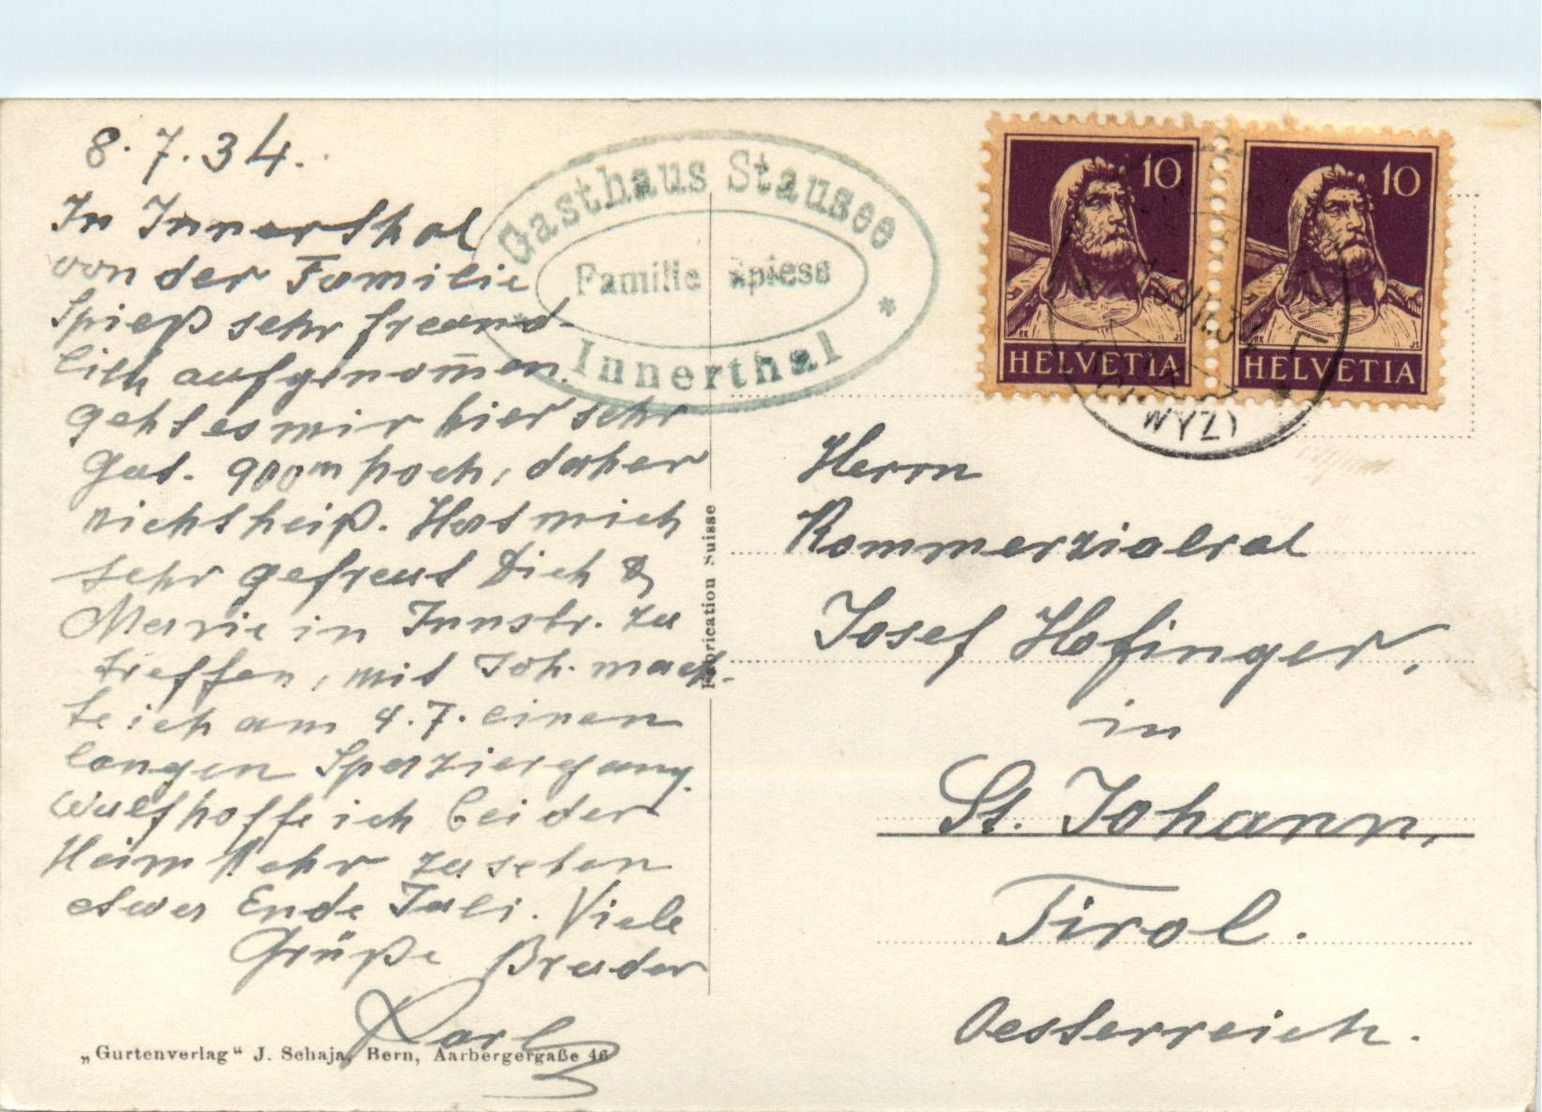 8.7.34.
In Innerthal
von der Familie
Spieß sehr freund-
lich aufgenom̅en.
geht es mir hier sehr
gut. 900m hoch, daher
nicht heiß. Hat mich
sehr gefreut Dich &
Marie in Innsbr. zu
treffen, mit Joh. mach-
te ich am 4.7. einen
langen Spaziergang.
Wulf hoffe ich bei der
Heimkehr zu sehen
etwa Ende Juli. Viele
Grüße Bruder
Karl
„Gurtenverlag“ J. Schaja, Bern, Aarbergergaße 46
Gasthaus Stausee
Familie Spiess
* Innerthal *
Fabrication Suisse
10
HELVETIA
10
HELVETIA
Herrn
Kommerzialrat
Josef Hofinger,
in
St. Johann,
Tirol.
Oesterreich.